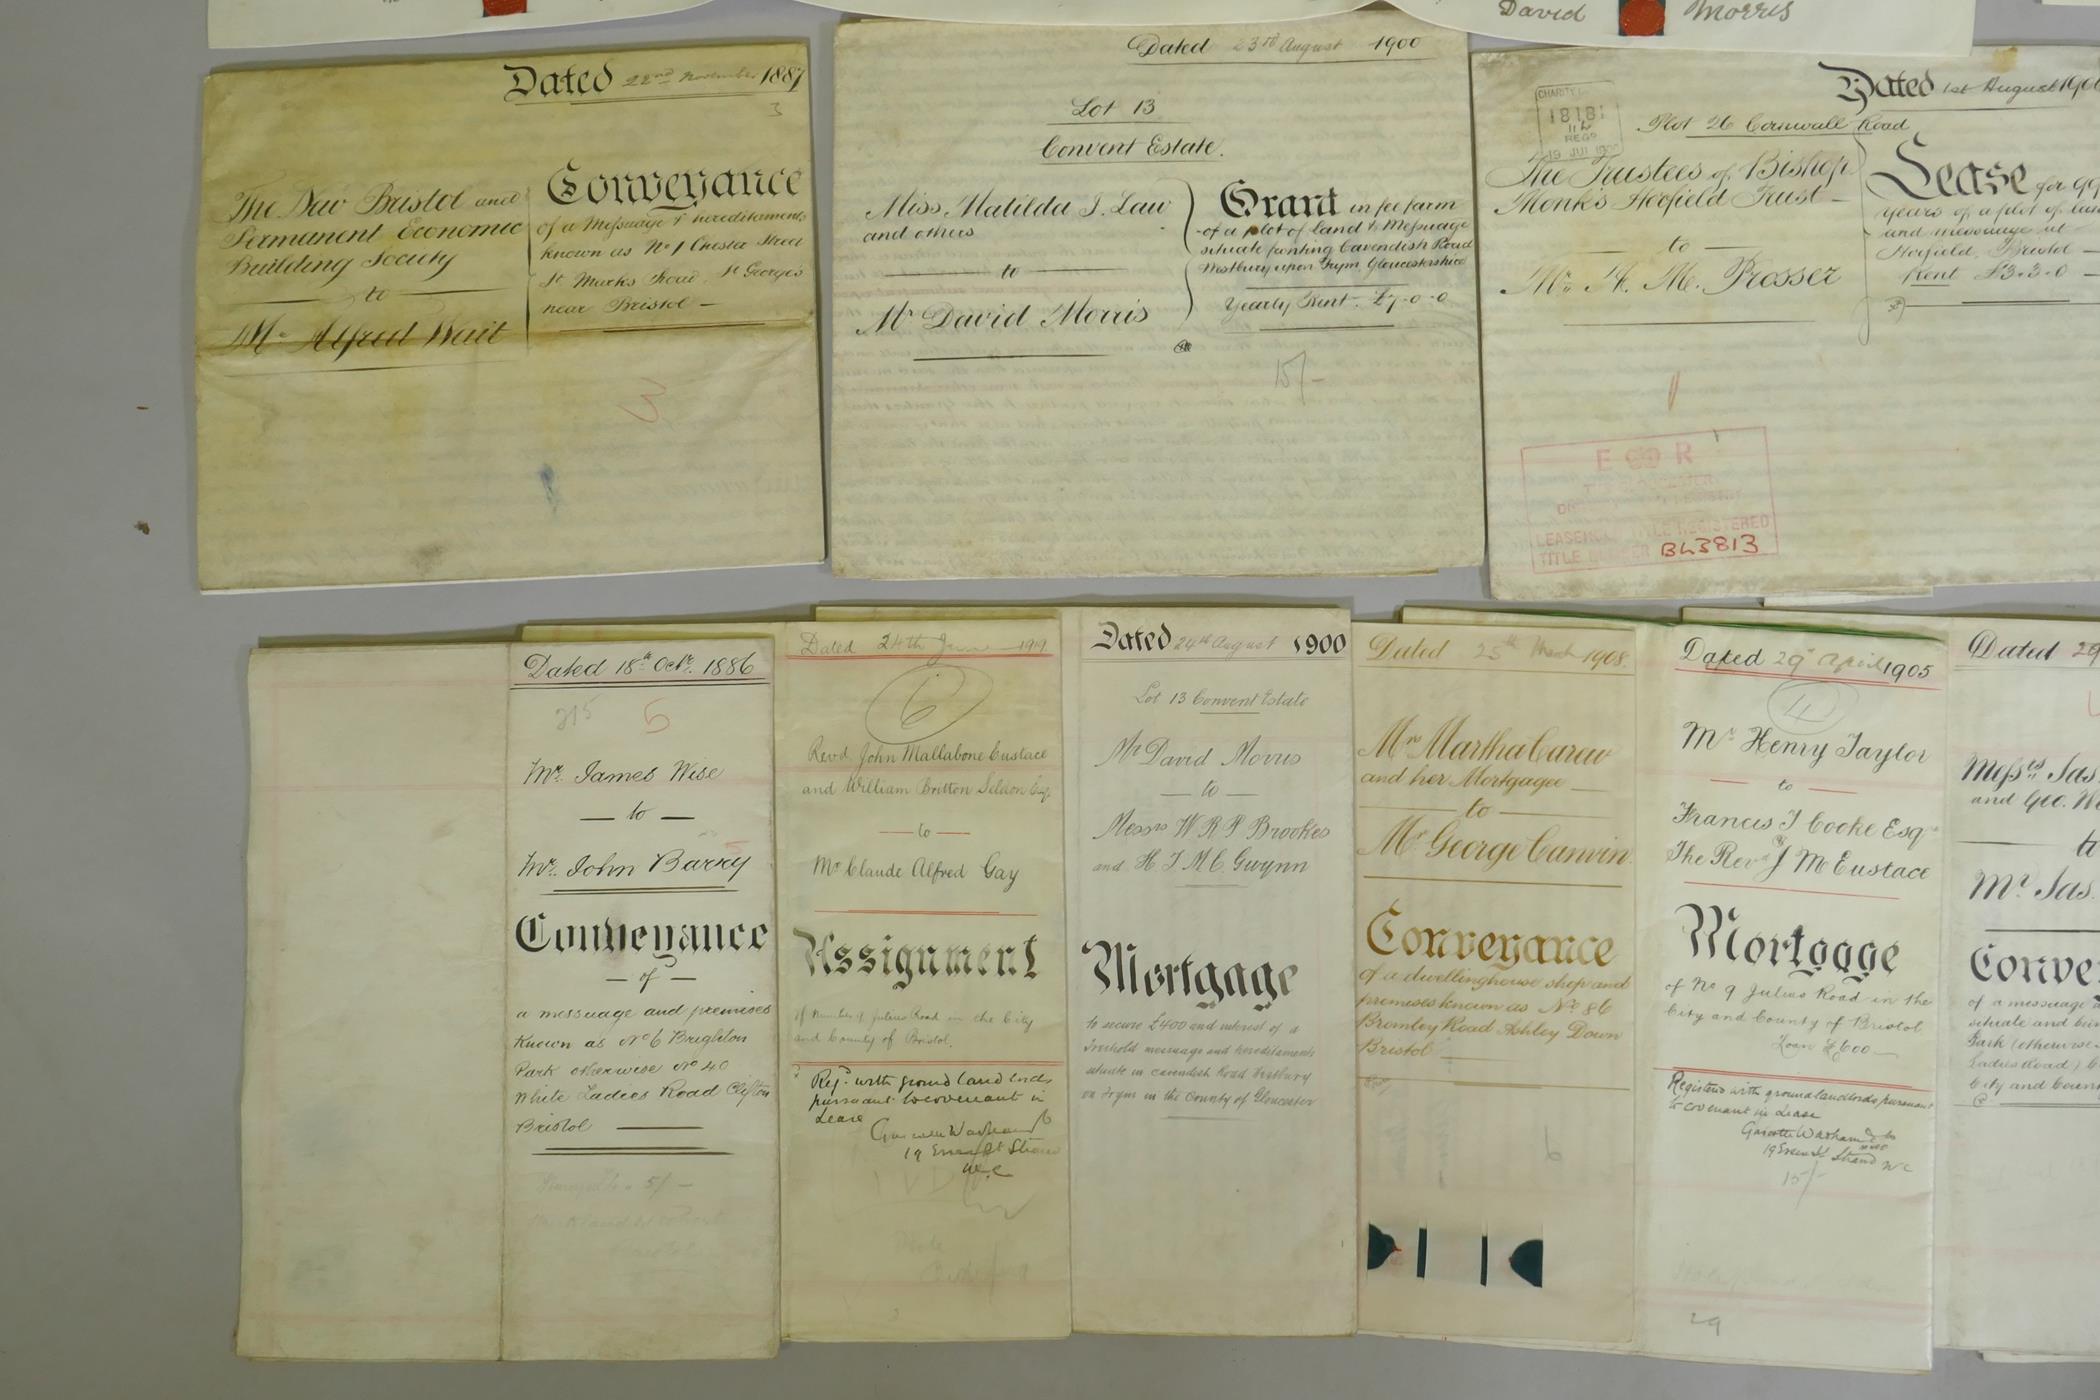 David Morris
Dated 22nd November 1887
3
The New Bristol and
Permanent Economic
Building Society
to
Mr Alfred Wait
Conveyance
of a Messuage & hereditaments
known as No 1 Chester Street
St Marks Road, St George's
near Bristol
3
Dated 23rd August 1900
Lot 13
Convent Estate.
Miss Matilda J. Law
and others
to
Mr David Morris
Grant in fee farm
of a plot of land & Messuage
situate fronting Cavendish Road
Westbury upon Trym Gloucestershire
Yearly Rent. £7-0-0
15/-
Dated 1st August
CHARITY
18181
REGD
19 JUL 1900
Plot 26 Cornwall Road
The Trustees of Bishop
Monk's Horfield Trust
to
Mr. H. M. Prosser
Lease for 99
years of a plot of
and messuage at
Horfield, Bristol
Rent £3-3-0
LEASEHOLD TITLE REGISTERED
TITLE NUMBER BL3813
Dated 18th Octr. 1886
315
5
Mr. James Wise
to
Mr. John Barry
Conveyance
of
a messuage and premises
known as No 6 Brighton
Park otherwise No 40
White Ladies Road Clifton
Bristol
5/-
Dated 24th June 1919
6
Revd. John Mallabone Eustace
and William Britton Seldon Esq.
to
Mr Claude Alfred Gay
Assignment
of Number 9 Julius Road in the City
and County of Bristol.
Regd. with ground landlords
pursuant to covenant in
Lease
19 Essex St Strand
W.C
Dated 24th August 1900
Lot 13 Convent Estate
Mr David Morris
to
Messrs W R P Brookes
and H T M C Gwynn
Mortgage
to secure £400 and interest of a
freehold messuage and hereditaments
situate in Cavendish Road Westbury
on Trym in the County of Gloucester
Dated 25th March 1908.
Mrs Martha Carew
and her Mortgagee
to
Mr George Canvin
Conveyance
of a dwellinghouse shop and
premises known as No 86
Bromley Road Ashley Down
Bristol
6
Dated 29th April 1905
4
Mr Henry Taylor
to
Francis J Cooke Esqr
The Revd J M Eustace
Mortgage
of No 9 Julius Road in the
City and County of Bristol
Loan £600
Registered with ground landlords pursuant
to covenant in Lease
19 Essex St Strand WC
15/-
29
Dated 29
Messrs Jas.
and Geo.
to
Mr Jas.
Conve
of a messuage
situate and
Park (otherwise
Ladies Road)
City and Coun